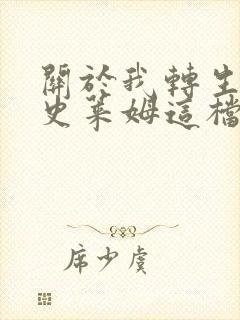 關於我轉生
史萊姆這檔
席少虞